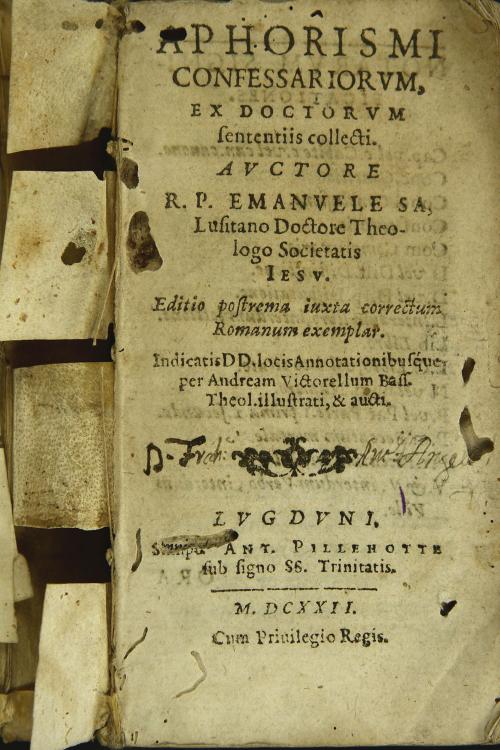 APHORISMI
CONFESSARIORVM,
EX DOCTORVM
ſententiis collecti.
AVCTORE
R. P. EMANVELE SA,
Luſitano Doctore Theo-
logo Societatis
IESV.
Editio poſtrema iuxta correctum
Romanum exemplar.
Indicatis DD. locis Annotationibuſque
per Andream Victorellum Baſſ.
Theol. illuſtrati, & aucti.
LVGDVNI,
ANT. PILLEHOTTE
ſub ſigno SS. Trinitatis.
M. DCXXII.
Cum Priuilegio Regis.